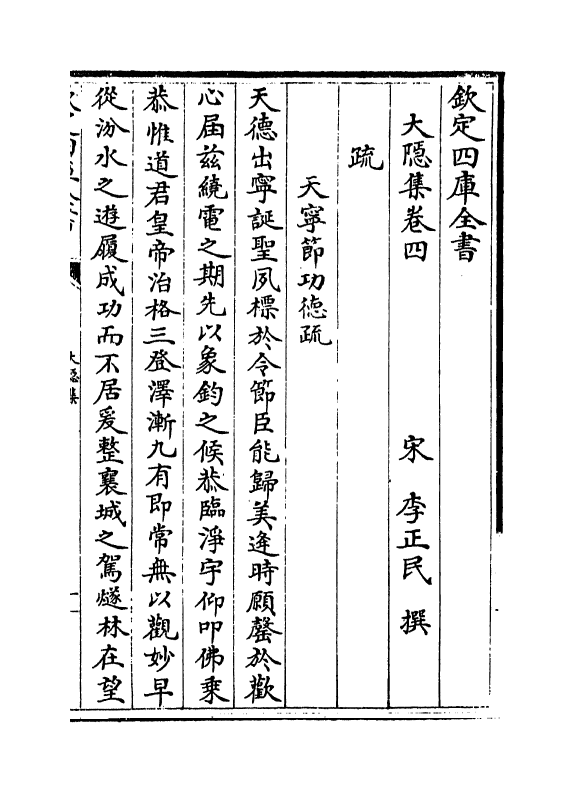 欽定四庫全書
大隱集卷四　宋　李正民　撰
疏
天寧節功德疏
天德出寧誕聖夙標於令節臣能歸美逢時願罄於歡
心屆兹繞電之期先以象鈞之候恭臨淨宇仰叩佛乗
恭惟道君皇帝治格三登澤漸九有即常無以觀妙早
從汾水之遊履成功而不居爰整襄城之駕燧林在望
大隱集